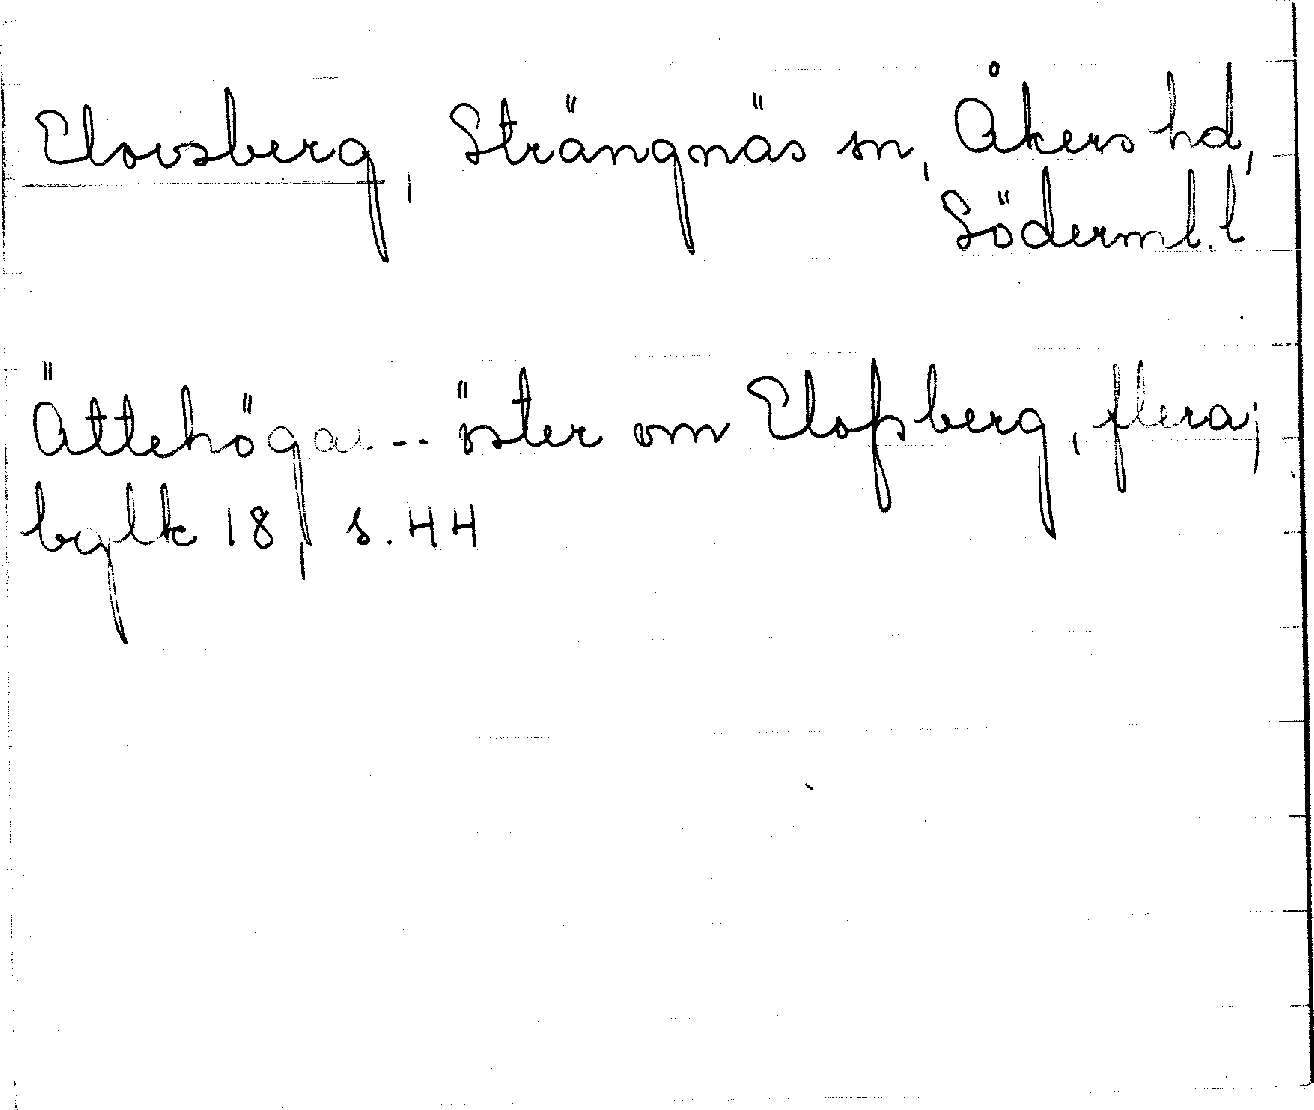 Elovsberg, Strängnäs sn, Åkers hd,
Söderml. l
Ättehögar -- öster om Elofsberg, flera;
bglk 18, s. 44